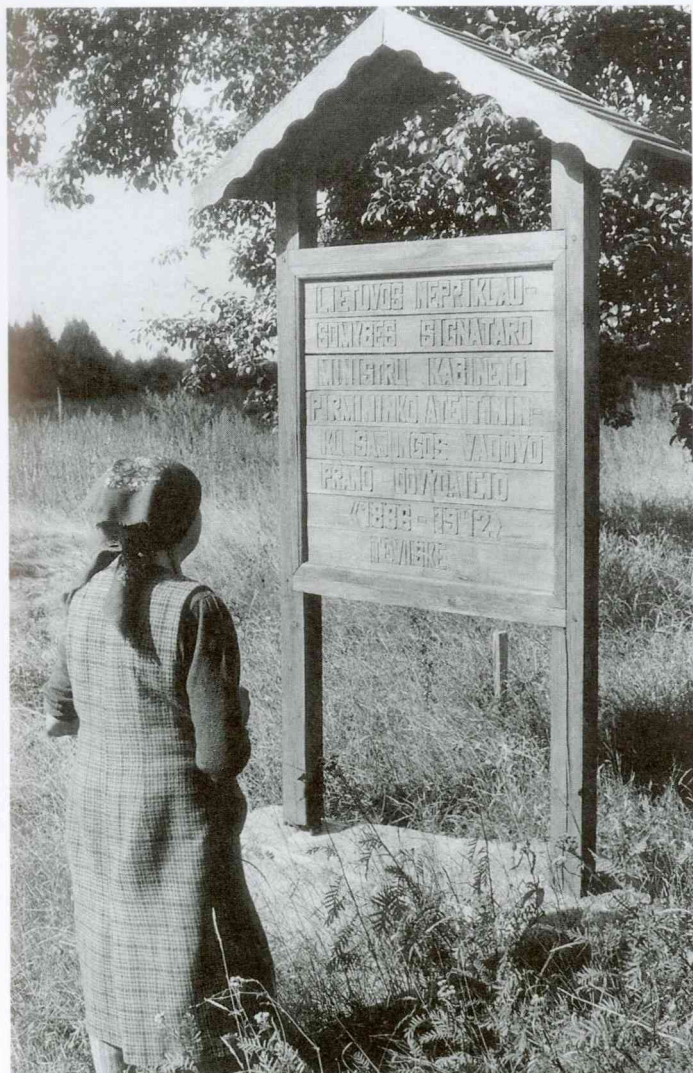 LIETUVOS NEPRIKLAU-
SOMYBĖS SIGNATARO
MINISTRŲ KABINETO
PIRMININKO ATEITININ-
KŲ SĄJUNGOS VADOVO
PRANO DOVYDAIČIO
«1886-1942»
TĖVIŠKĖ